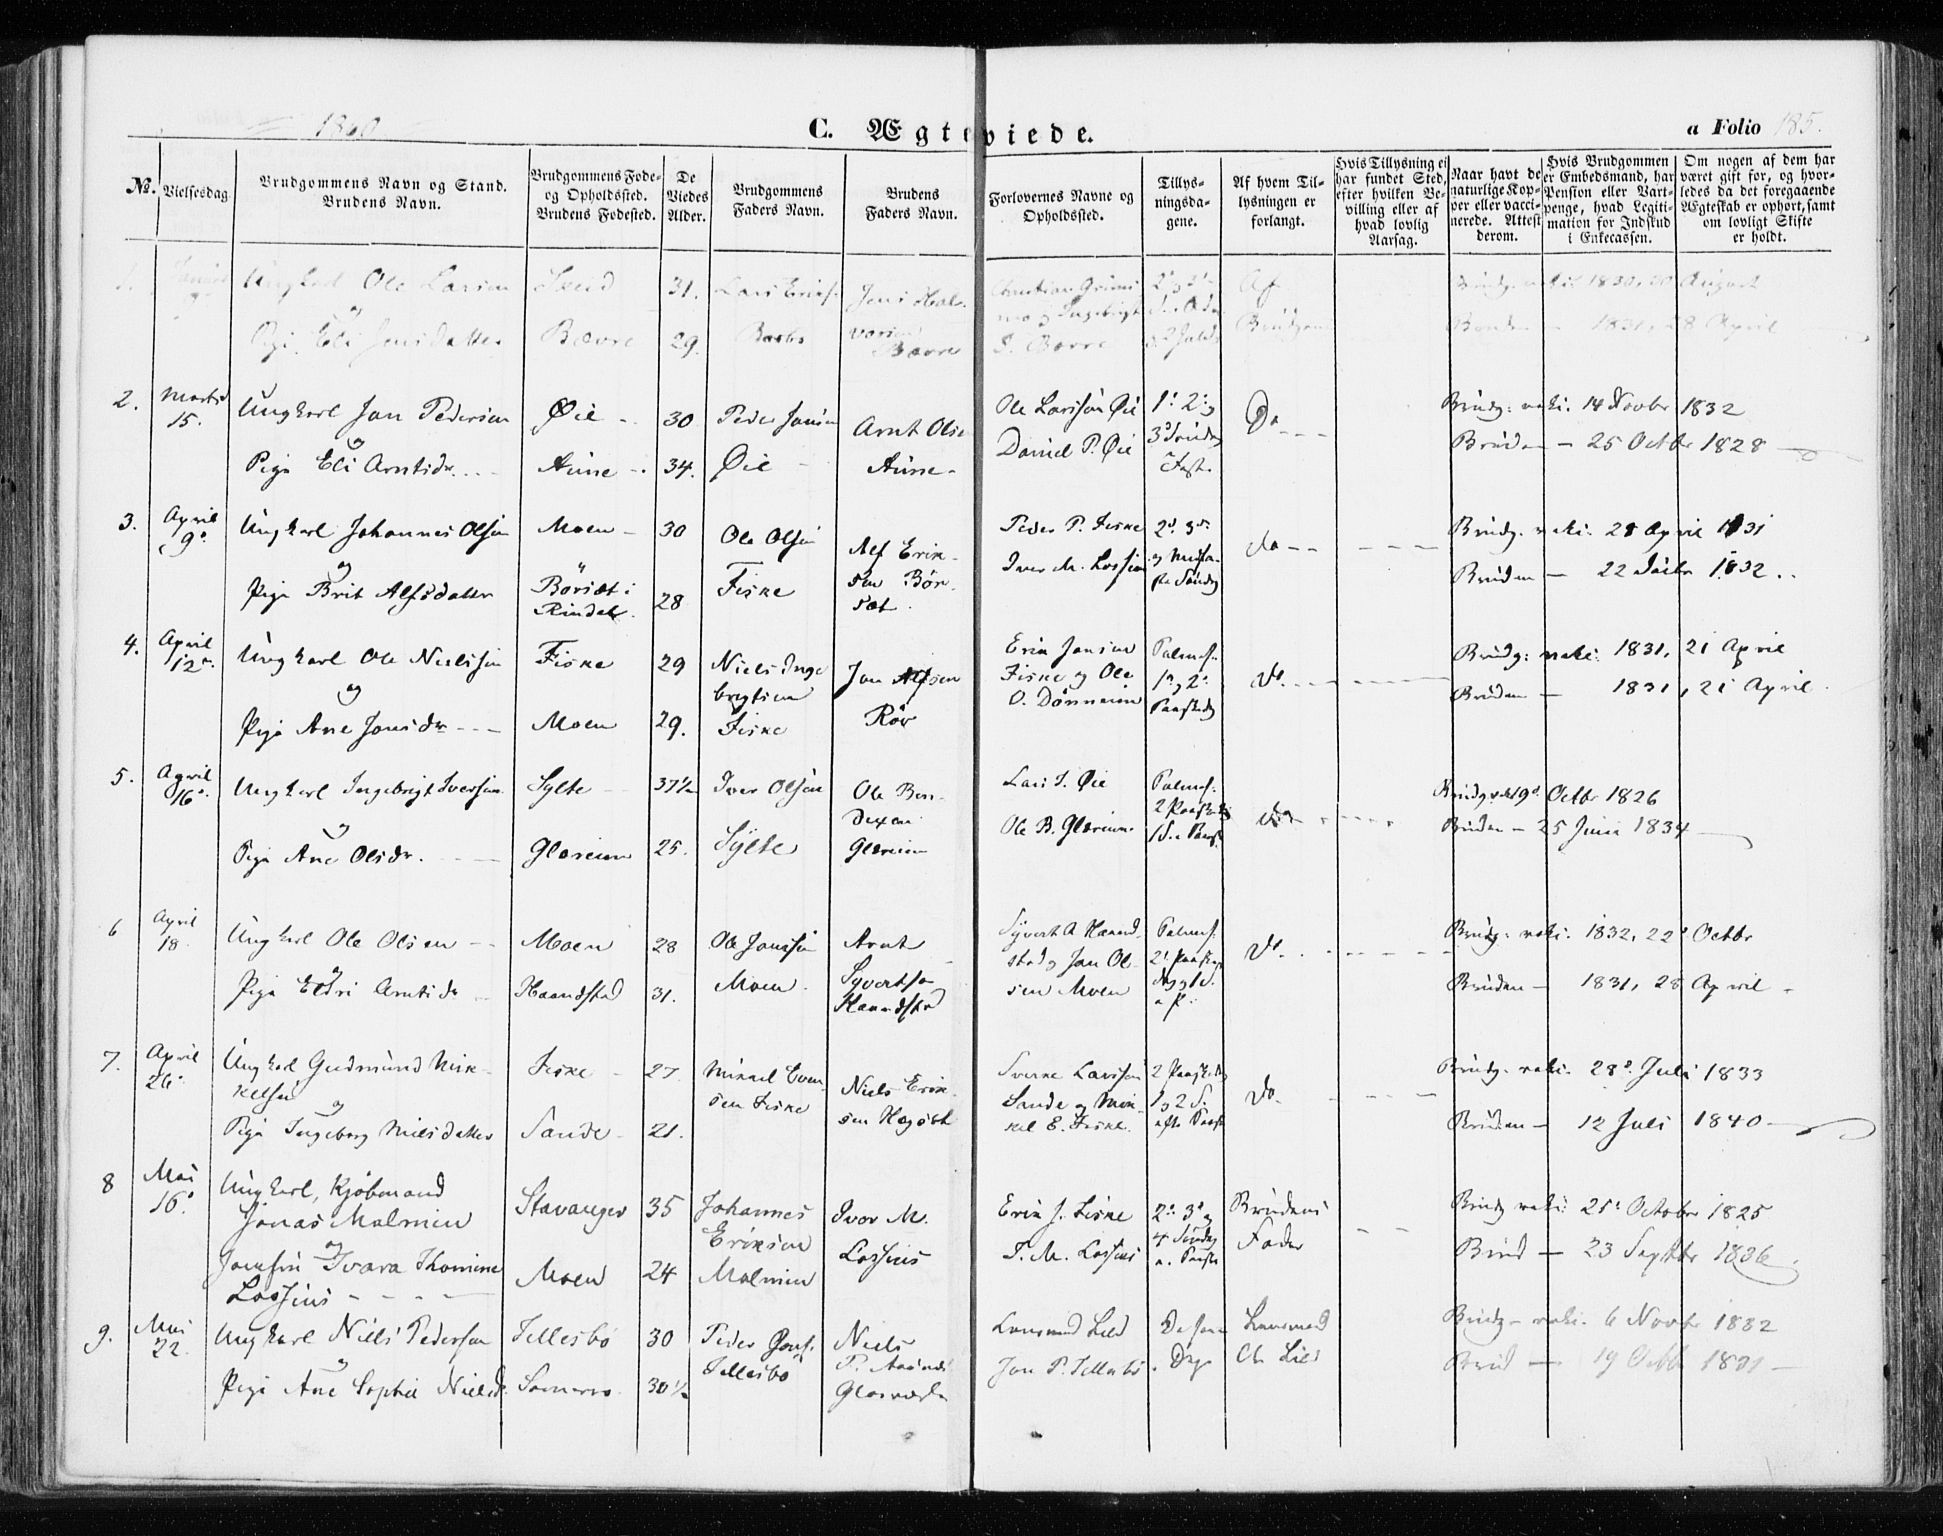 1860
C. Ægteviede.
a Folio 185.
No.
Vielsesdag.
Brudgommens Navn og Stand.
Brudens Navn.
Brudgommens Føde-
og Opholdssted.
Brudens Fødested.
De
Viedes
Alder.
Brudgommens
Faders Navn.
Brudens
Faders Navn.
Forlovernes Navne og
Opholdssted.
Tillys-
ningsda-
gene.
Af hvem Til-
lysningen er
forlangt.
Hvis Tillysning ei
har fundet Sted,
efter hvilken Be-
villing eller af
hvad lovlig
Aarsag.
Naar havt de
naturlige Kop-
per eller vacci-
nerede. Attest
derom.
Hvis Brudgommen
er Embedsmand, har
Pension eller Vart-
penge, hvad Legiti-
mation for Indskud
i Enkecassen.
Om nogen af dem har
været gift før, og hvor-
ledes da det foregaaende
Ægteskab er ophørt, samt
om lovligt Skifte
er holdt.
1.
Ungkarl Ole Larsen
og
Pige Eli Jonsdatter
Bævre
31.
29.
Lars Eriks.
Jens Hal-
vorsen
Bævre
Bævre
Af
Brudgom
1830, 20 August
Bruden – 1831, 28 April
2.
Marts
15.
Ungkarl Jon Pedersen
og
Pige Eli Arntsdr.
Øie
Aune
30
34.
Peder Jonsen
Øie
Arnt Olsen
Aune
Ole Larssøn Øie
Daniel P. Øie
1. 2. og
3. Søndag
Fast.
Do
Brudg: vaki. 14 Novbr 1832
Bruden – 25 Octbr 1828
3.
April
9.
Ungkarl Johannes Olsen
og
Pige Brit Alfsdatter
Moen
Börset i
Rindal.
30
28
Ole Olsen
Fiske
Alf Erik-
sen Bør-
set.
Peder P. Fiske
Iver M. Lossius
2. 3.
Do
Brudg. vaki. 28 April 1831
Bruden – 22 1832
4.
April
12.
Ungkarl Ole Nielssen
og
Pige Ane Jonsdr
Fiske
Moen
29
29.
Niels Inge
brigtsen
Fiske
Jon Alfsen
Röv
Erik Jonsen
Fiske og Ole
O. Dønneim
Palmes.
1. og 2.
Paaskedg
Do.
Brudg: vaki: 1831, 21 April
Bruden – 1831, 21 April
5.
April
16.
Ungkarl Ingebrigt Iversen
og
Pige Ane Olsdr.
Sylte
Glæreim
37½
25.
Iver Olsen
Sylte
Ole Ben-
dixen
Glæreim
Lars I. Øie
Ole B. Glæreim
Palmes.
Do
Brudg vaki 9. Octbr 1826
Bruden – 25 Juni 1834
6
April
18.
Ungkarl Ole Olsen
og
Pige Eldri Arntsdr
Moen
Haandstad
28
31.
Ole Jonssen
Moen.
Arnt
Syvertsen
Haandstad
Syvert A Haand-
stad og Jon Ol-
sen Moen
Palmes.
Do.
Brudg: vaki. 1832, 22 Octbr
Bruden – 1831, 28 April
7.
April
26.
Ungkarl Gudmund Mik-
kelsen
og
Pige Ingeborg Nielsdatter
Fiske
Sande
27
21.
Mikael Even-
sen Fiske
Niels Erik-
sen Hagset
Sverke Larssen
Sande og Mik-
kel E. Fiske.
2 Paaskedg
1 og 2 S.
efter Paaske
Do.
Brudg. vaki. 28. Juli 1833
Bruden – 12 Juli 1840
8
Mai
16.
Ungkarl, Kjøbmand
Jonas Malmin
og
Jomfru Ivara Thomine
Lossius
Stavanger
Moen
35
24
Johannes
Eriksen
Malmin
Ivar M.
Lossius
Erik J. Fiske
T. M. Lossius
2. 3. og
4 Søndag
e. Paaske
Brudens
Fader
Brudg vaki. 25. October 1825
Brud – 23 Septbr 1836.
9.
Mai
22.
Ungkarl Niels Pedersen
og
Pige Ane Sophie Nielsd.
Tellesbø
30
30½
Peder Jons.
Tellesbø
Niels
Lensmand Lied
Jon P. Tellesbø
Lensmand
Lied
Brudg – vaki. 6 Novbr 1832
Brud – 19 Octbr 1831